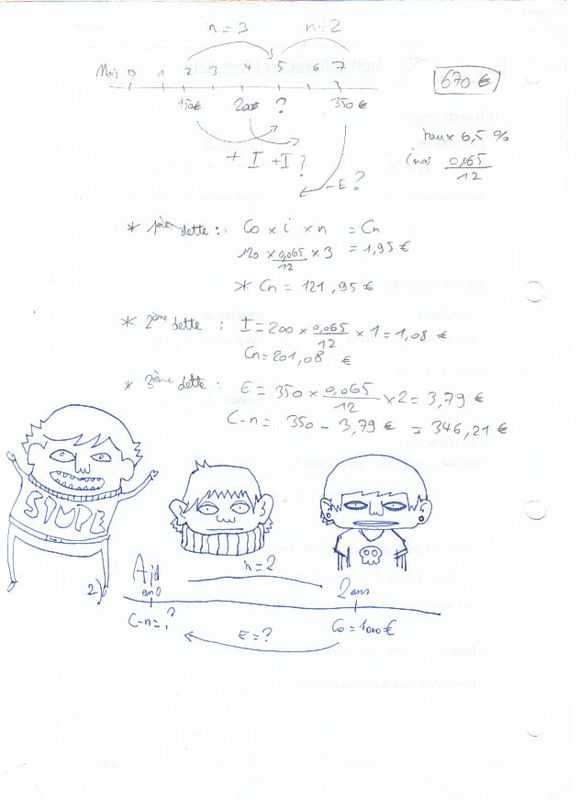 n=3 n=2
Mois 0 1 2 3 4 5 6 7
150€ 200€ ? 350€
670 €
+ I + I ?
- E ?
taux 6,5 %
i mois 0,065/12
* 1ère dette : Co x i x n = Cn
120 x 0,065/12 x 3 = 1,95 €
* Cn = 121,95 €
* 2ème dette : I = 200 x 0,065/12 x 1 = 1,08 €
Cn = 201,08 €
* 3ème dette : E = 350 x 0,065/12 x 2 = 3,79 €
C-n = 350 - 3,79 € = 346,21 €
STUPE
2)
Ajd n=2 2 ans
an 0
C-n = ? E = ? Co = 1000 €